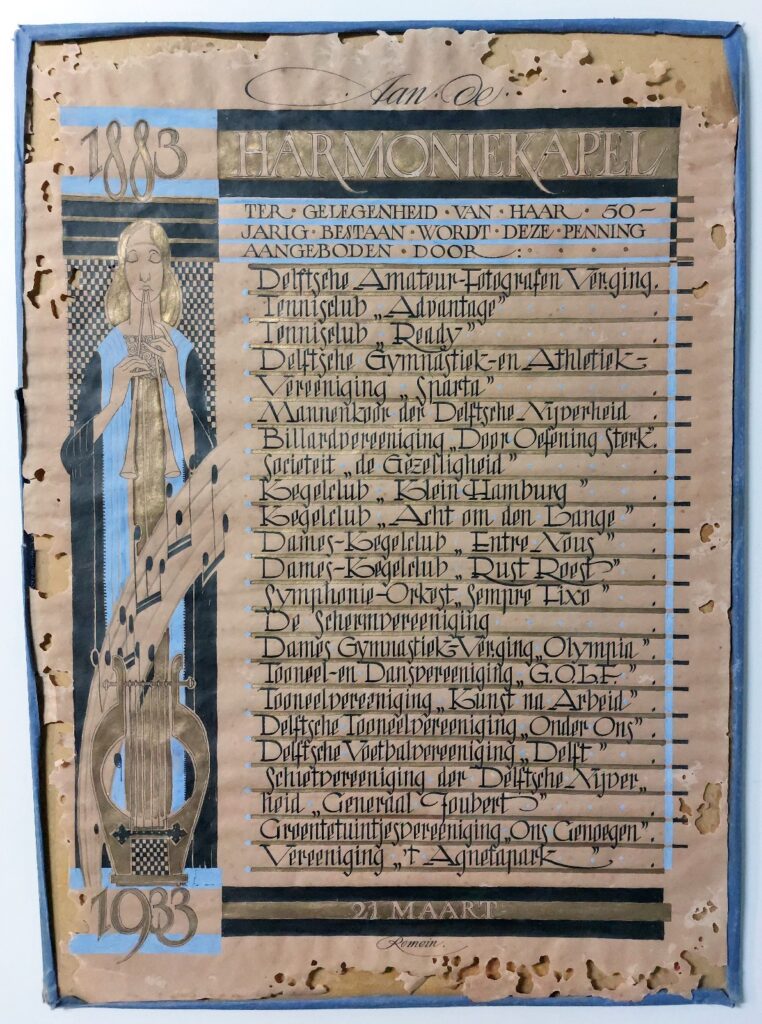 Aan · de ·
1883
HARMONIEKAPEL
TER · GELEGENHEID · VAN · HAAR · 50-
JARIG · BESTAAN · WORDT · DEZE · PENNING
AANGEBODEN · DOOR · :
Delftsche Amateur-Fotografen Verging.
Tennisclub „Advantage”
Tennisclub „Ready”
Delftsche Gymnastiek-en Athletiek-
Vereeniging „Sparta”
Mannenkoor der Delftsche Nyverheid
Billardvereeniging „Door Oefening Sterk”.
Societeit „de Gezelligheid”
Kegelclub „Klein Hamburg”
Kegelclub „Acht om den Lange”
Dames-Kegelclub „Entre Nous”
Dames-Kegelclub „Rust Roest”
Symphonie-Orkest „Sempre Fixo”
De Schermvereeniging
Dames Gymnastiek-Verging „Olympia”.
Tooneel-en Dansvereeniging „G.O.L.F.”
Tooneelvereeniging „Kunst na Arbeid”
Delftsche Tooneelvereeniging „Onder Ons”.
Delftsche Voetbalvereeniging „Delft”
Schietvereeniging der Delftsche Nyver„
heid „Generaal Joubert”
Groentetuintjesvereeniging „Ons Genoegen”.
Vereeniging „'t Agnetapark”
1933
21 MAART
Romein.